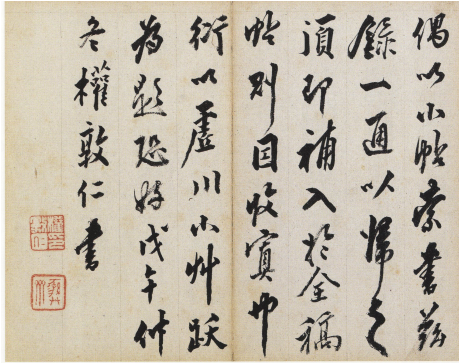 偶以小帖索書茲
錄一通以歸之
須即補入於全稿
帖則因收寘巾
衍以虛川小艸跋
為題恐好戊午仲
冬權敦仁書